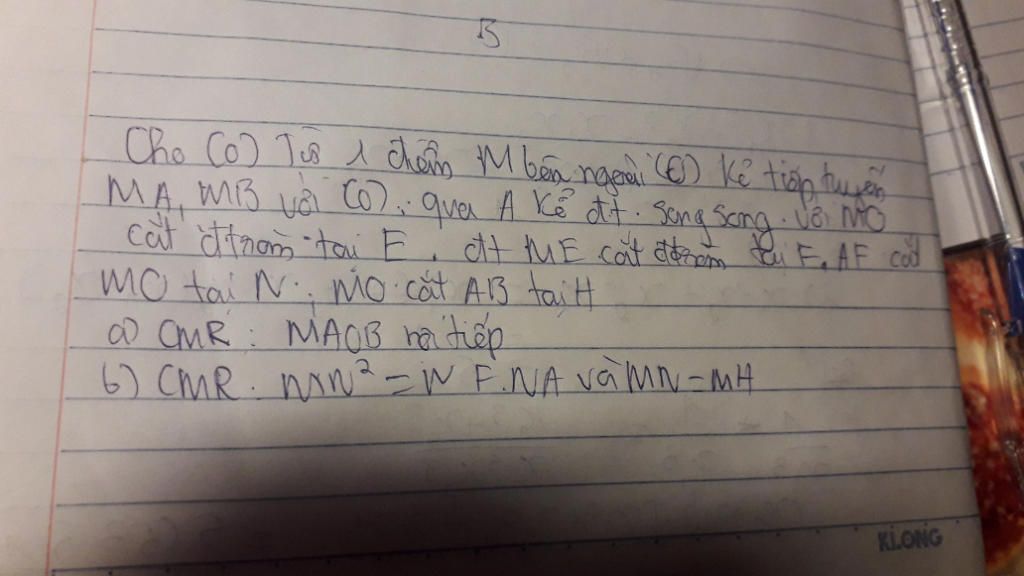 B
Cho (O) Từ 1 điểm M bên ngoài (O) kẻ tiếp tuyến
MA, MB với (O), qua A kẻ đt. song song với MO
cắt đtròn tại E. đt ME cắt đtròn tại F, AF cắt
MO tại N, MO cắt AB tại H
a) CMR: MAOB nội tiếp
b) CMR: MN² = NF.NA và MN = MH
KLONG